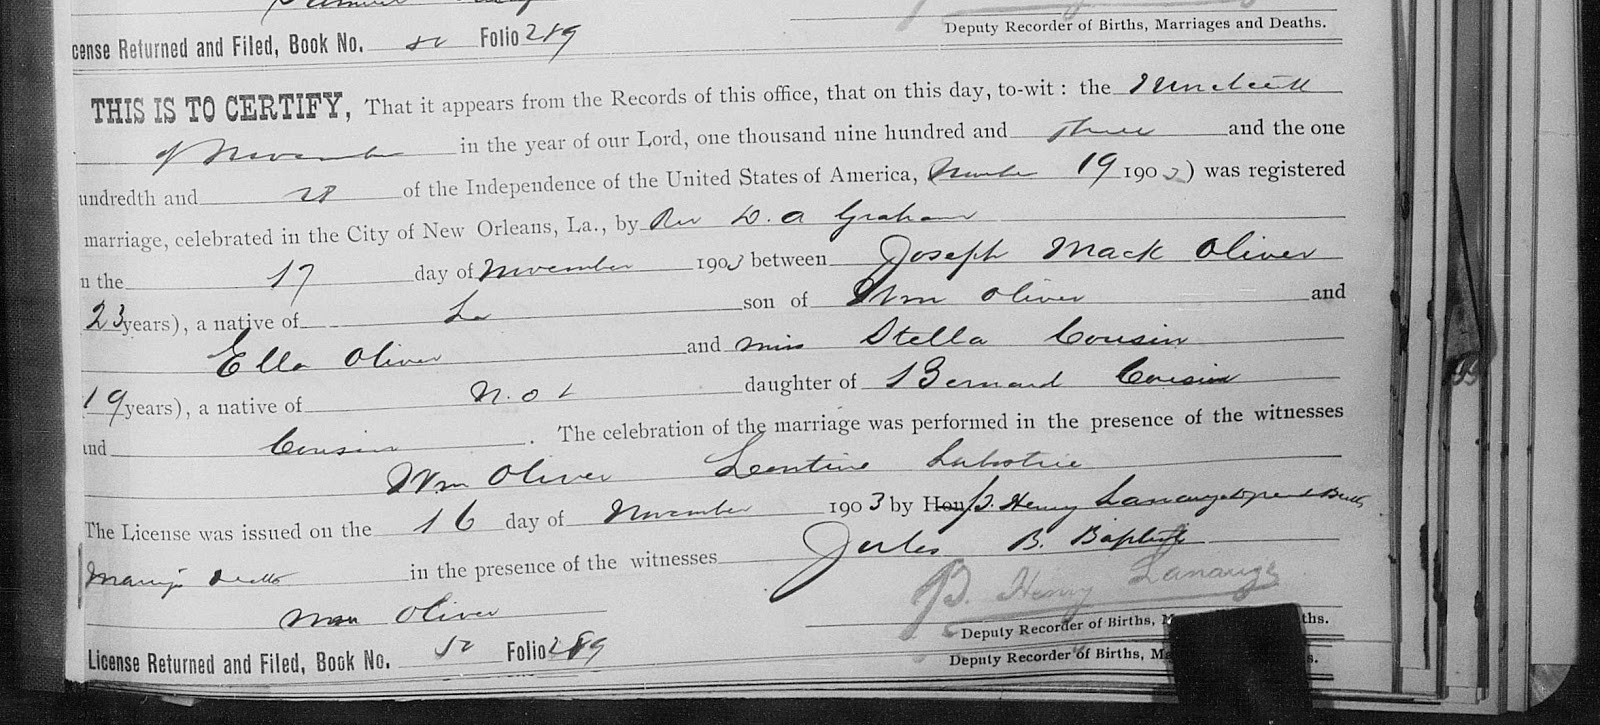 cense Returned and Filed, Book No. Folio 289
Deputy Recorder of Births, Marriages and Deaths.
THIS IS TO CERTIFY, That it appears from the Records of this office, that on this day, to-wit: the
of November in the year of our Lord, one thousand nine hundred and three and the one
undredth and 28 of the Independence of the United States of America, November 19 1903) was registered
marriage, celebrated in the City of New Orleans, La., by Rev D. A Graham
n the 17 day of November 1903 between Joseph Mack Oliver
23 years), a native of La son of Wm Oliver and
Ella Oliver and Miss Stella Cousin
19 years), a native of N.O L daughter of Bernard Cousin
und Cousin. The celebration of the marriage was performed in the presence of the witnesses
Wm Oliver Leontine
The License was issued on the 16 day of November 1903 by Hon P. Henry Lanauze
in the presence of the witnesses Jules B. Baptiste
Wm Oliver
P. Henry Lanauze
Deputy Recorder of Births, ths.
License Returned and Filed, Book No. Folio 289
Deputy Recorder of Births, Ma s.